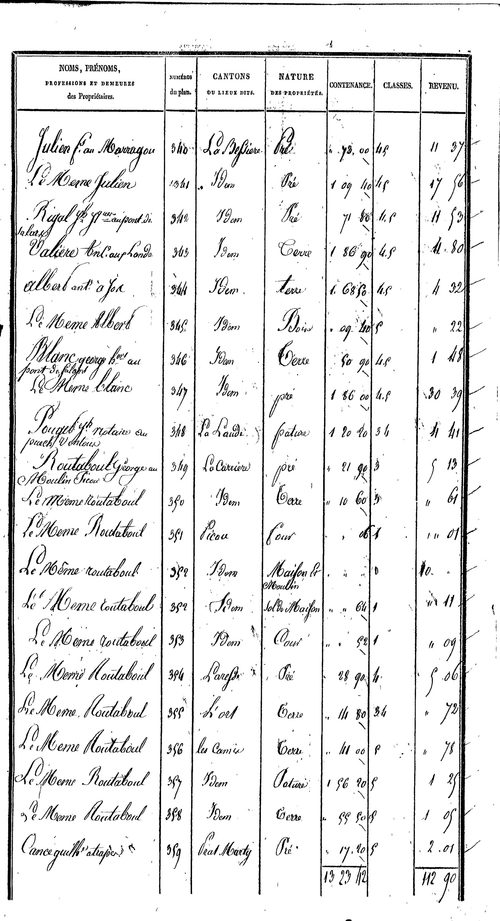 NOMS, PRÉNOMS, PROFESSIONS ET DEMEURES des Propriétaires. NUMÉROS du plan. CANTONS OU LIEUX DITS. NATURE DES PROPRIÉTÉS. CONTENANCE. CLASSES. REVENU.
Julien au Marragou 340 La Bessiere Pré " 73. 00 45 11 37
Le Meme Julien 341 Idem Pré 1 09 40 45 17 56
Rigal au pont de 342 Idem Pré 71 80 4.5 11 53
Valiere 343 Idem Terre 1 86 90 4.5 4 80
Albert ant. à 344 Idem terre 1. 68 50 4.5 4 32
Le Meme Albert 345 Idem Bois " 09 40 5 " 22
Blanc george au pont de 346 Idem Terre 50 90 4.5 1 48
Le Meme blanc 347 Idem pré 1 86 00 4.5 30 39
notaire au 348 La Laude pature 1 20 20 34 4 41
Routaboul George au Moulin Picou 349 La Carriere pré " 21 90 3 5 13
Le Meme routaboul 350 Idem Terre " 10 60 3 " 61
Le Meme Routaboul 351 Picou four " " 06 1 " 01
Le Même routaboul 352 Idem Maison et Moulin " " " 10. "
Le Meme routaboul 352 Idem sol de Maison " " 64 1 " 11
Le Meme routaboul 353 Idem Cour " " 52 1 " 09
Le Memé Routaboul 354 Pré " 28 90 4 5 06
Le Meme. Routaboul 355 L'ort Terre " 14 80 34 " 72
Le Meme Routaboul 356 les Camis Terre " 41 00 5 " 78
Le Meme Routaboul 357 Idem Pature 1 56 20 5 1 25
Le Meme Routaboul 358 Idem Terre " 55 50 5 1 05
Cance 359 Prat Marty Pré " 17. 20 5 2. 01
13 23 42 112 90